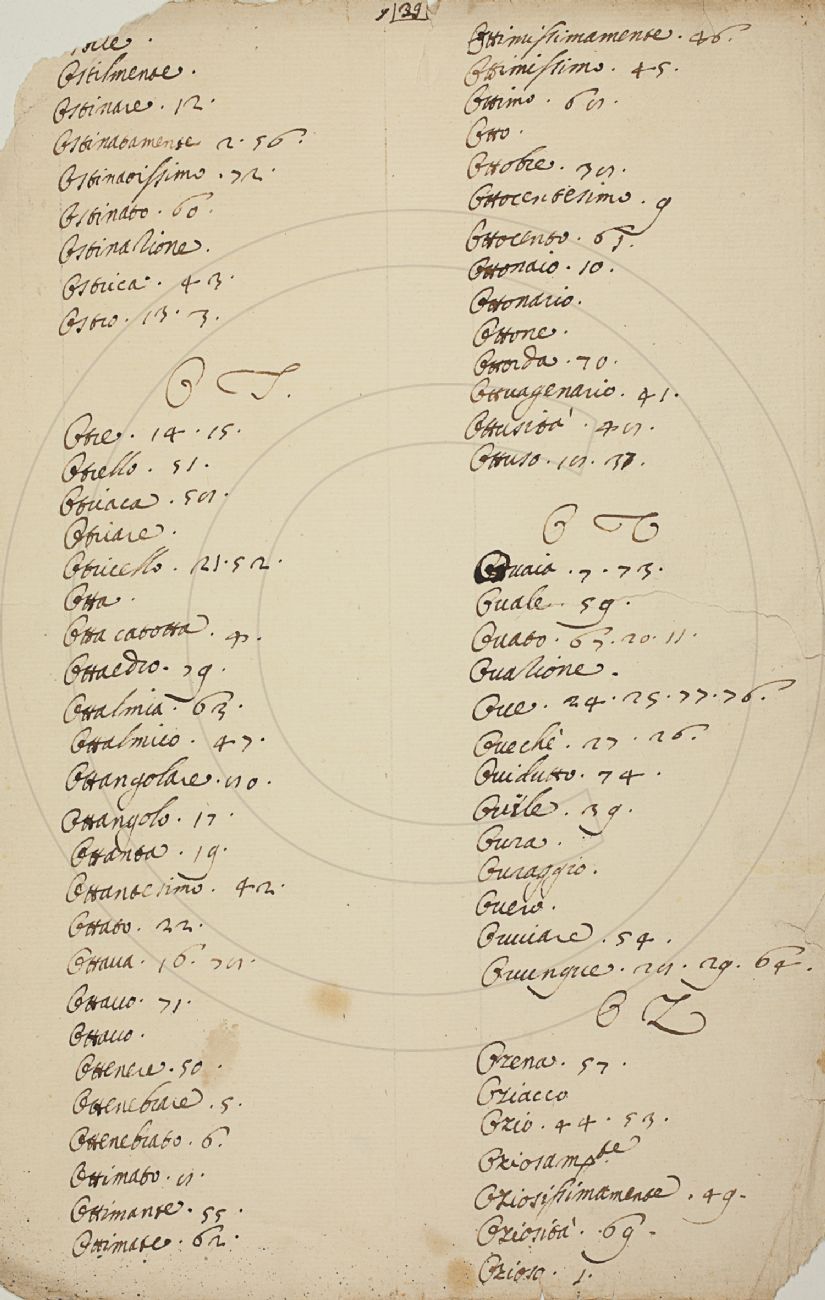 39
Ostilmente .
Ostinare . 12 .
Ostinatamente 2 . 56 .
Ostinatissimo . 72 .
Ostinato . 60 .
Ostinazione .
Ostrica . 43 .
Ostro . 13 . 3 .
O T .
Otre . 14 . 15 .
Otrello . 51 .
Otriaca . 58 .
Otriare .
Otricello . 21 . 52 .
Otta .
Otta catotta . 4 .
Ottaedro . 79 .
Ottalmia . 63 .
Ottalmico . 47 .
Ottangolare . 80 .
Ottangolo . 17 .
Ottanta . 19 .
Ottantesimo . 42 .
Ottato . 22 .
Ottava . 16 . 78 .
Ottavo . 71 .
Ottavo .
Ottenere . 50 .
Ottenebrare . 5 .
Ottenebrato . 6 .
Ottimato . 8 .
Ottimante . 55 .
Ottimate . 62 .
Ottimissimamente . 46 .
Ottimissimo . 45 .
Ottimo . 68 .
Otto .
Ottobre . 78 .
Ottocentesimo . 9
Ottocento . 61 .
Ottonaio . 10 .
Ottonario .
Ottone .
Ottorda . 70 .
Ottuagenario . 41 .
Ottusità . 48 .
Ottuso . 18 . 37 .
O V
Ovaia . 7 . 73 .
Ovale . 59 .
Ovato . 67 . 20 . 11 .
Ovazione .
Ove . 24 . 25 . 77 . 76 .
Ovechè . 27 . 26 .
Ovidutto . 74 .
Ovile . 39 .
Ovra .
Ovraggio .
Ovvero .
Ovviare . 54 .
Ovunque . 28 . 29 . 64 .
O Z
Ozena . 57 .
Oziacco
Ozio . 44 . 53 .
Oziosamte
Oziosissimamente . 49 .
Oziosità . 69 .
Ozioso . 1 .